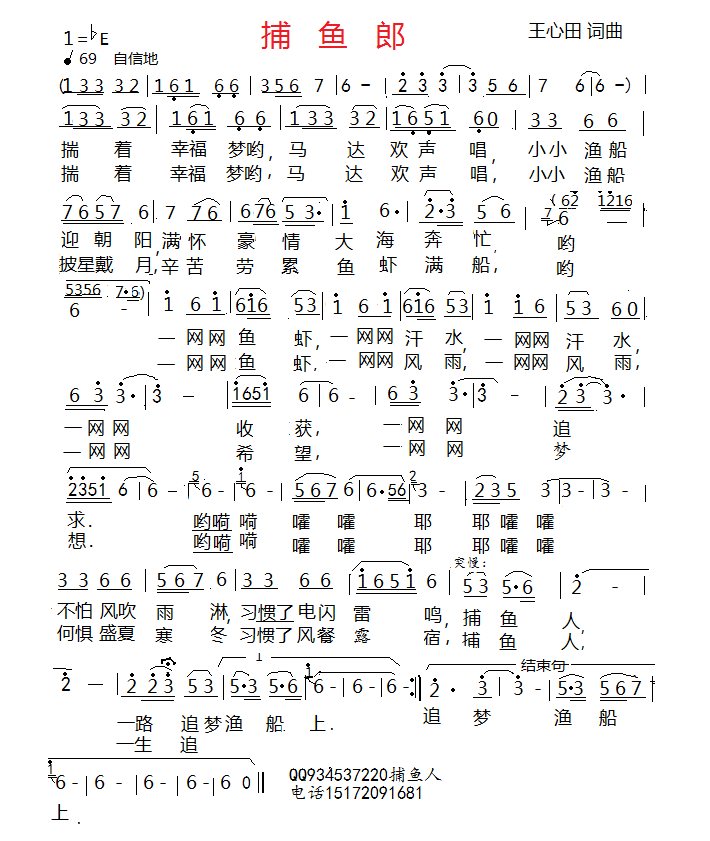 捕 鱼 郎
王心田 词曲
1=♭E
69 自信地
(1 3 3 3 2 | 1 6 1 6 6 | 3 5 6 7 | 6 − | 2 3 3 | 3 5 6 | 7 6 | 6 −) |
1 3 3 3 2 | 1 6 1 6 6 | 1 3 3 3 2 | 1 6 5 1 6 0 | 3 3 6 6 |
揣 着 幸福 梦哟, 马 达 欢 声 唱, 小小 渔船
揣 着 幸福 梦哟, 马 达 欢 声 唱, 小小 渔船
(62 1216
7 6 5 7 6 | 7 7 6 | 6 7 6 5 3· | 1 6· | 2·3 5 6 | 7 6 − |
迎 朝 阳, 满 怀 豪 情 大 海 奔 忙, 哟
披星戴 月, 辛 苦 劳 累 鱼 虾 满 船, 哟
5356 7·6)
6 - | 1 6 1 | 6 1 6 5 3 | 1 6 1 | 6 1 6 5 3 | 1 1 6 | 5 3 6 0 |
一 网 网 鱼 虾, 一 网网 汗 水, 一 网网 汗 水,
一 网 网 鱼 虾, 一 网网 风 雨, 一 网网 风 雨,
6 3 3· | 3 − | 1651 6 | 6 - | 6 3 3· | 3 − | 2 3 3· |
一 网 网 收 获, 一 网 网 追
一 网 网 希 望, 一 网 网 梦
2351 6 | 6 − | 5 6 - | 1 6 - | 5 6 7 6 | 6· 56 | 2 3 - | 2 3 5 3 | 3 − |
求. 哟嗬 嗬 嚯 嚯 耶 耶 嚯 嚯
想. 哟嗬 嗬 嚯 嚯 耶 耶 嚯 嚯
突慢:
3 3 6 6 | 5 6 7 6 | 3 3 6 6 | 1 6 5 1 6 | 5 3 5·6 | 2 - |
不怕 风吹 雨 淋, 习惯了 电闪 雷 鸣, 捕 鱼 人,
何惧 盛夏 寒 冬 习惯了 风餐 露 宿, 捕 鱼 人,
1 结束句
2 — | 2 2 3 5 3 | 5·3 5·6 | 1 6 - | 6 - :|| 2 3 | 3 5·3 | 5 6 7 |
一路 追 梦渔 船 上. 追 梦 渔 船
一生 追
1 6 - | 6 - | 6 - | 6 - | 6 0 ||
上.
QQ934537220捕鱼人
电话15172091681